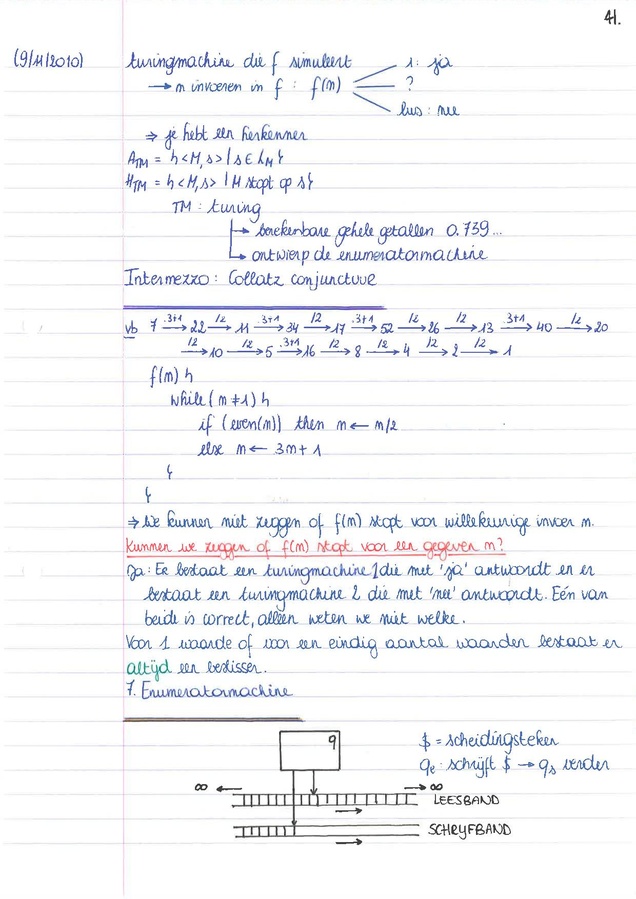 41.
(9/11/2010) turingmachine die f simuleert 1: ja
→ n invoeren in f : f(n) ?
lus : nee
⇒ je hebt een herkenner
A_TM = {<M,s> | s ∈ L_M}
H_TM = {<M,s> | M stopt op s}
TM : turing
↳ berekenbare gehele getallen 0.739...
↳ ontwierp de enumeratormachine
Intermezzo : Collatz conjunctuur
vb 7 —3+1→ 22 —/2→ 11 —3+1→ 34 —/2→ 17 —3+1→ 52 —/2→ 26 —/2→ 13 —3+1→ 40 —/2→ 20
—/2→ 10 —/2→ 5 —3+1→ 16 —/2→ 8 —/2→ 4 —/2→ 2 —/2→ 1
f(n) {
while (n ≠ 1) {
if (even(n)) then n ← n/2
else n ← 3n + 1
}
}
⇒ We kunnen niet zeggen of f(n) stopt voor willekeurige invoer n.
Kunnen we zeggen of f(n) stopt voor een gegeven n?
Ja : Er bestaat een turingmachine 1 die met 'ja' antwoordt en er
bestaat een turingmachine 2 die met 'nee' antwoordt. Eén van
beide is correct, alleen weten we niet welke.
Voor 1 waarde of voor een eindig aantal waarden bestaat er
altijd een beslisser.
7. Enumeratormachine
q $ = scheidingsteken
q_e : schrijft $ → q_s verder
∞ ← → ∞
LEESBAND
→
SCHRIJFBAND
→